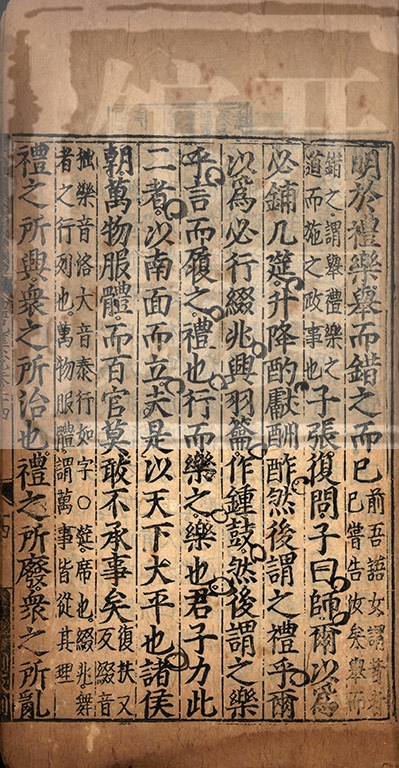 明於禮樂舉而錯之而已
前吾語女謂昔者
已嘗告汝矣舉而
錯之謂舉禮樂之
道而施之政事也
子張復問子曰師爾以爲
必鋪几筵升降酌獻酬酢然後謂之禮乎爾
以爲必行綴兆興羽籥作鍾鼓然後謂之樂
乎言而履之禮也行而樂之樂也君子力此
二者以南面而立夫是以天下大平也諸侯
朝萬物服體而百官莫敢不承事矣
復扶又
反綴音
拙樂音洛大音泰行如字○筵席也綴兆舞
者之行列也萬物服體謂萬事皆從其理
禮之所興衆之所治也禮之所廢衆之所亂